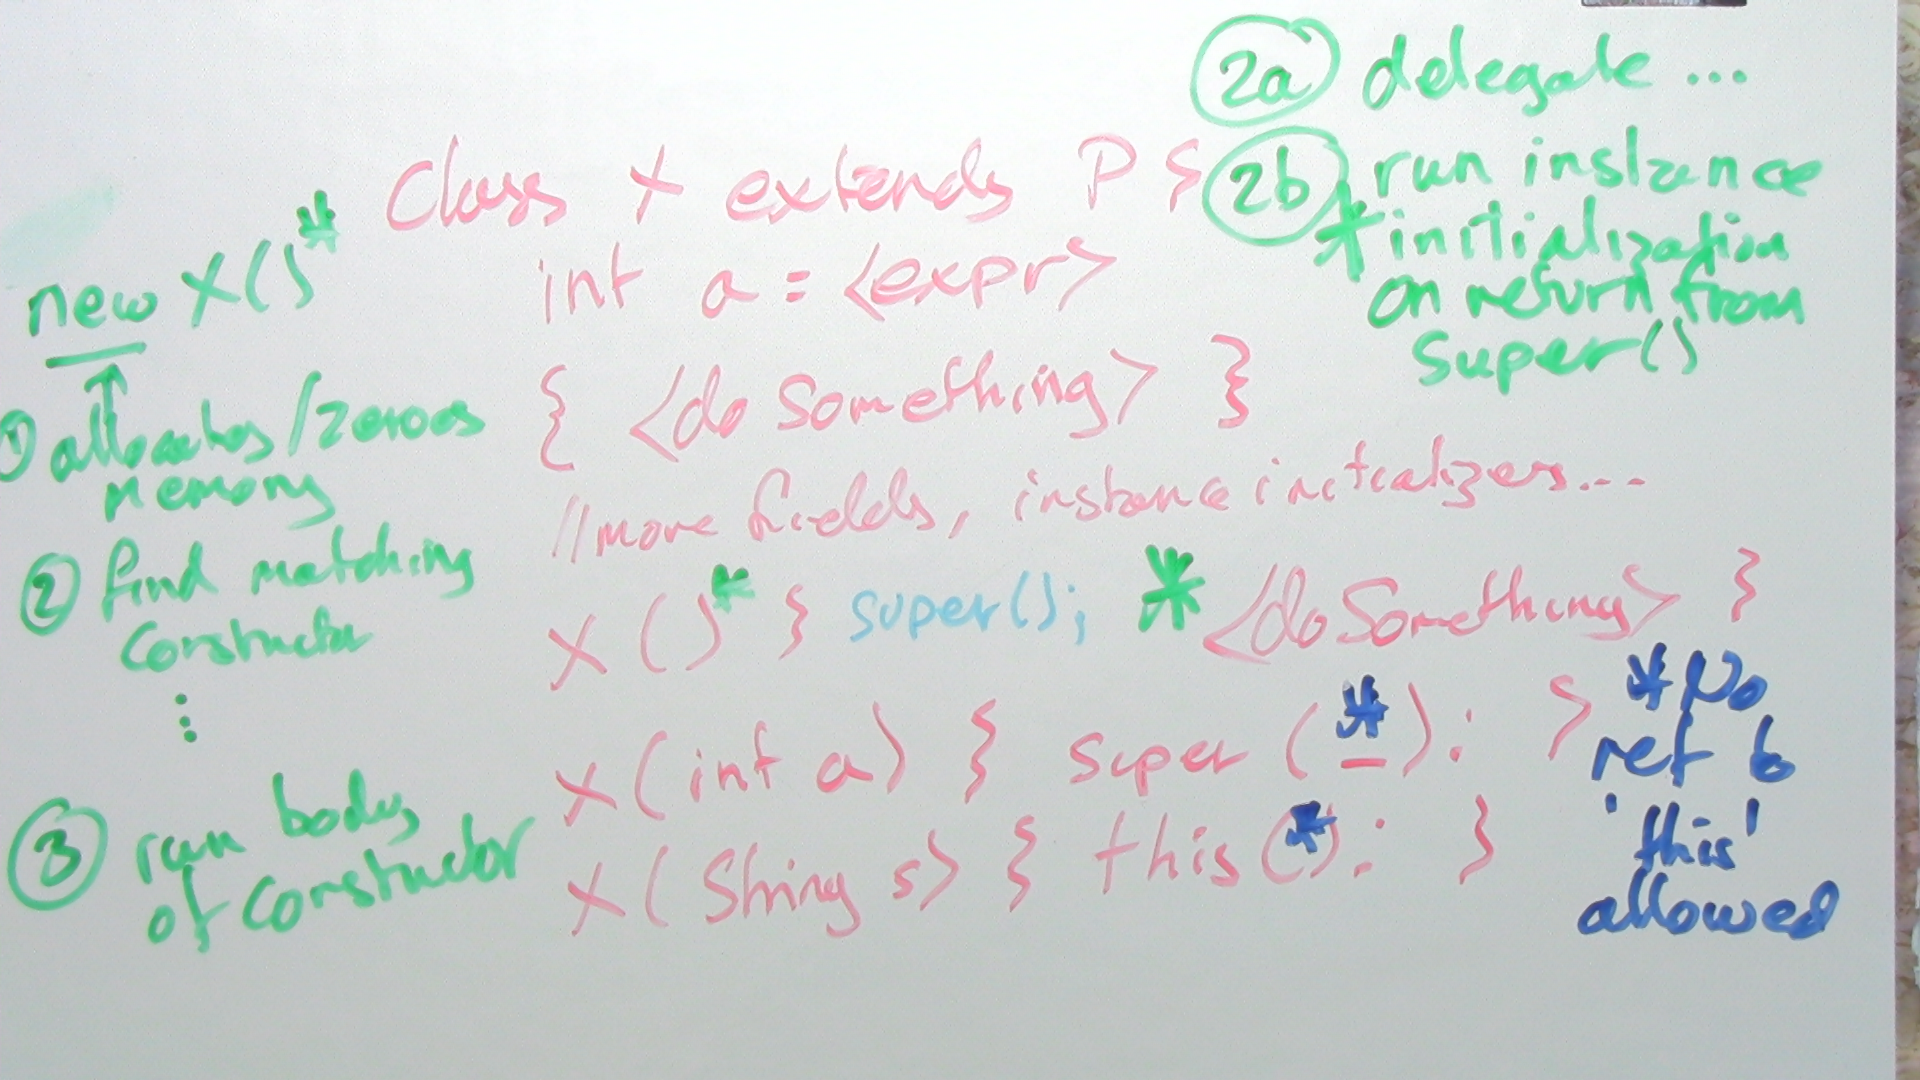 2a delegate ...
2b run instance
* initialization
on return from
super()
Class X extends P {
int a = <expr>
{ <do Something> }
//more fields, instance initializers...
X()* { super(); * <doSomething> }
X(int a) { super(*_); }
X(String s) { this(*); }
new X()*
1 allocates/zeroes
memory
2 find matching
constructor
⋮
3 run body
of constructor
* No
ref to
'this'
allowed